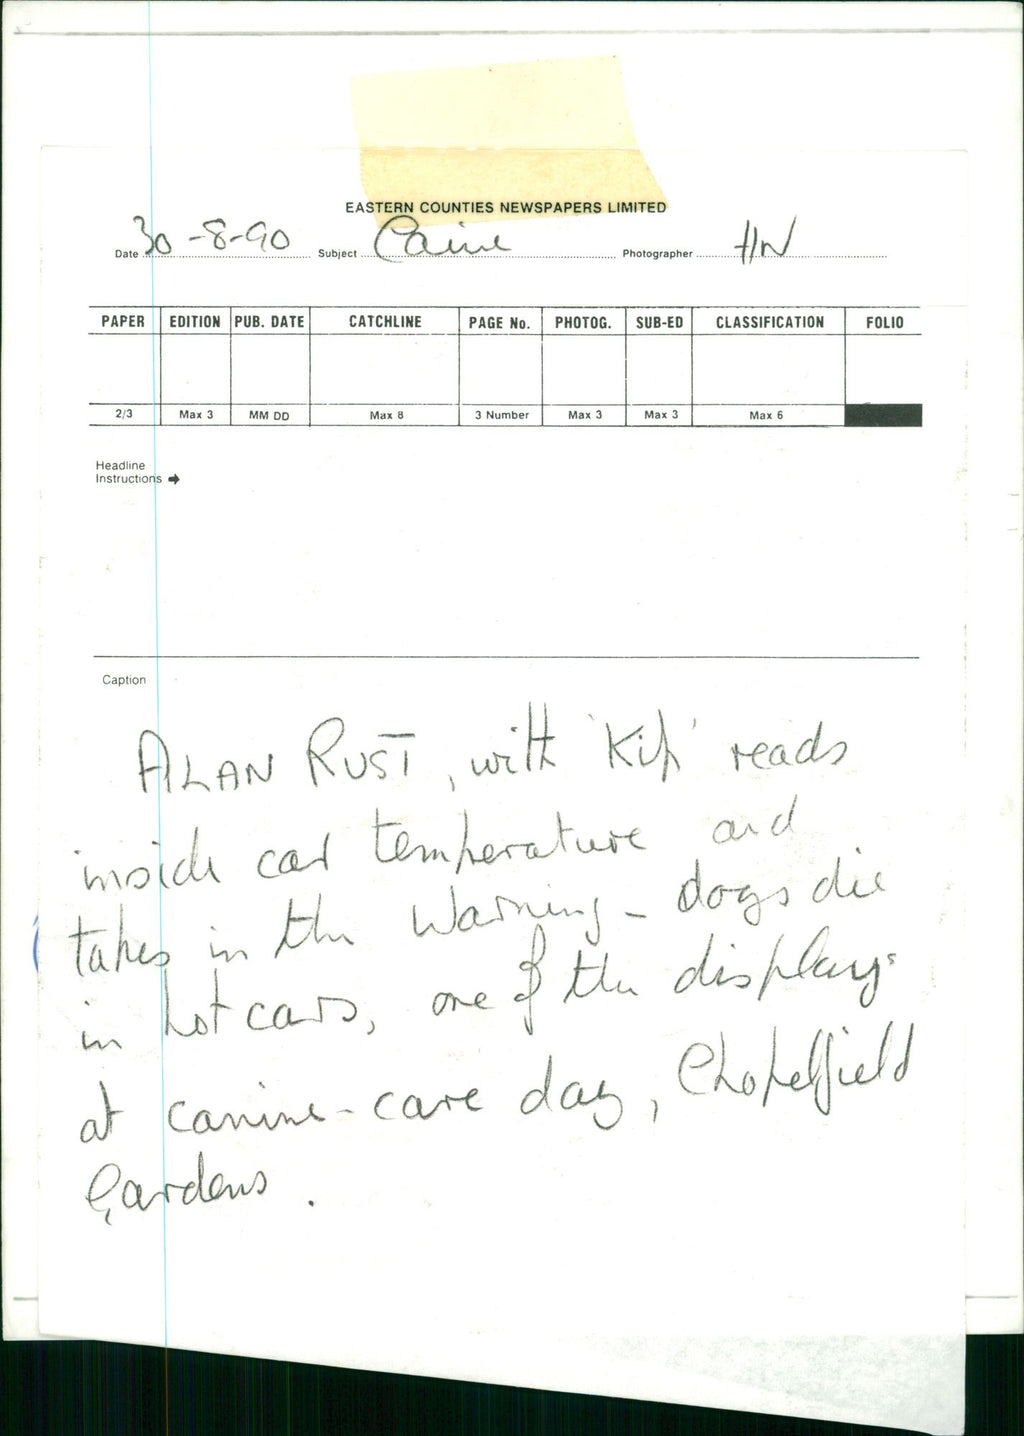 EASTERN COUNTIES NEWSPAPERS LIMITED
Date 30-8-90 Subject Canine Photographer HN
PAPER EDITION PUB. DATE CATCHLINE PAGE No. PHOTOG. SUB-ED CLASSIFICATION FOLIO
2/3 Max 3 MM DD Max 8 3 Number Max 3 Max 3 Max 6
Headline
Instructions ➔
Caption
ALAN RUST, with 'Kip' reads
inside car temperature and
takes in the warning - dogs die
in hot cars, one of the displays
at canine-care day, Chapelfield
Gardens.